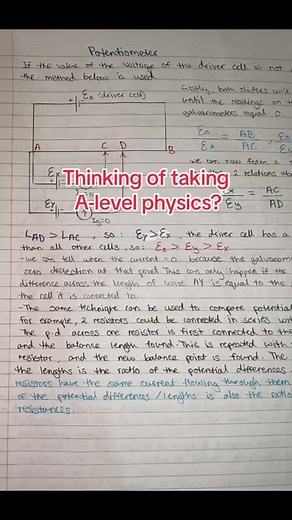 Potentiometer
If the value of the voltage of the driver cell is not
the method below is used.
Ɛo (driver cell)
Firstly, both sliders will
until the readings on t
galvanometers equal 0.
Ɛo/Ɛx = AB/AC , Ɛo
we can
2 relations ab
A C D B
Ɛx
Ɛy
I=0
Thinking of taking
A-level physics?
x/Ɛy = AC/AD
LAD > LAC , so : Ɛy > Ɛx . the driver cell has a
than all other cells, so: Ɛo > Ɛy > Ɛx
- we can tell when the current = 0 because the galvanom
zero deflection at that point. This can only happen if the
difference across the length of wire AY is equal to the
the cell it is connected to.
- The same technique can be used to compare potential
For example, 2 resistors could be connected in series wit
The p.d across one resistor is first connected to the
and the balance length found. This is repeated with
resistor, and the new balance point is found. The
the lengths is the ratio of the potential differences.
resistors have the same current flowing through them
of the potential differences / lengths is also the ratio
resistances.